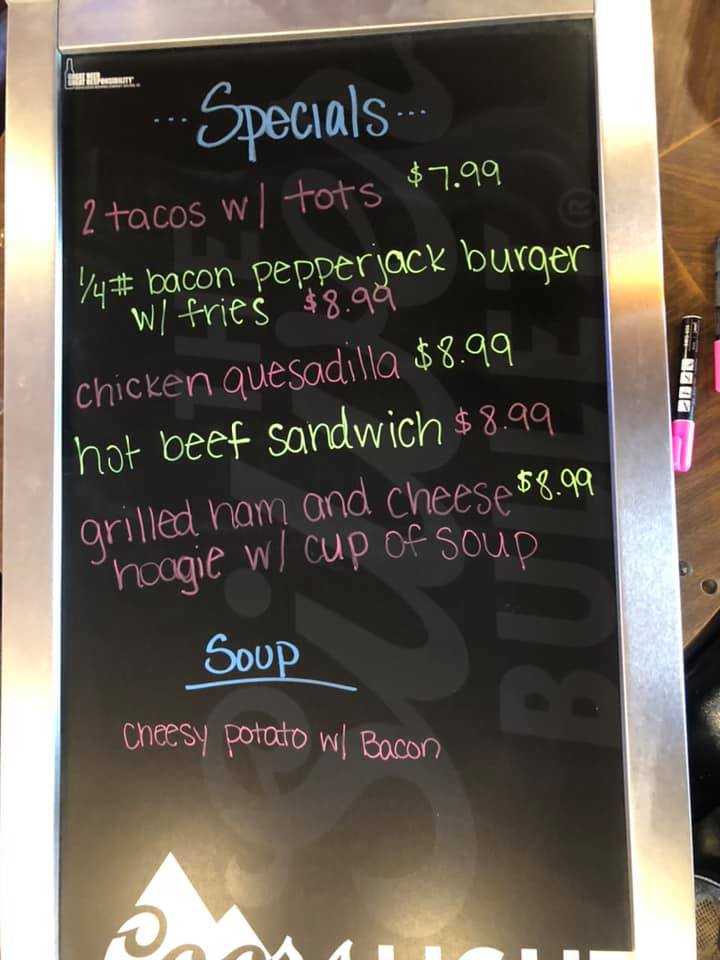 GREAT BEER
GREAT RESPONSIBILITY
...Specials...
2 tacos w/ tots $7.99
1/4# bacon pepperjack burger
w/ fries $8.99
chicken quesadilla $8.99
hot beef sandwich $8.99
grilled ham and cheese $8.99
hoagie w/ cup of soup
Soup
Cheesy potato w/ Bacon
THE
Silver
BULLET®
Coors LIGHT